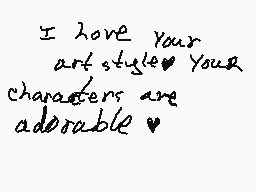 I Love Your
art style♥ Your
characters are
adorable ♥